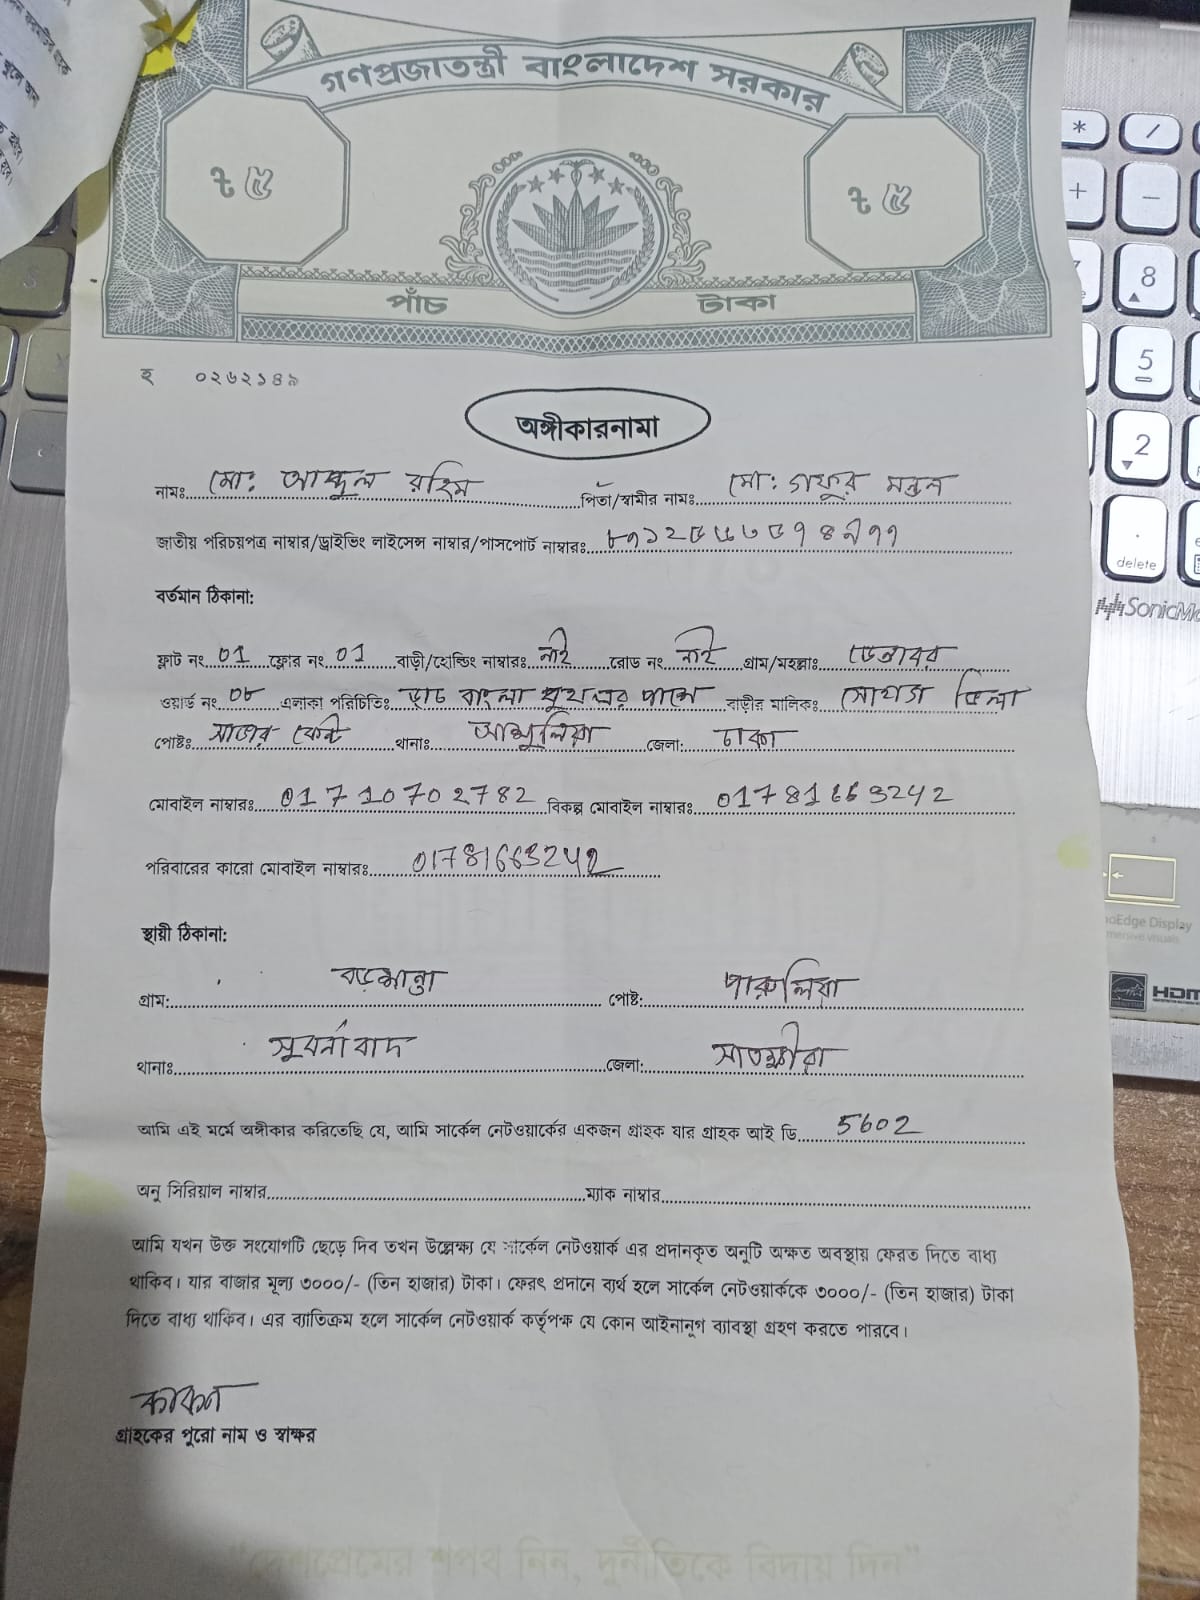 গণপ্রজাতন্ত্রী বাংলাদেশ সরকার
৳ ৫ ৳ ৫
পাঁচ টাকা
হ ০২৬২১৪৯
অঙ্গীকারনামা
নামঃ মো: আব্দুল রহিম পিতা/স্বামীর নামঃ মো: গফুর মন্ডল
জাতীয় পরিচয়পত্র নাম্বার/ড্রাইভিং লাইসেন্স নাম্বার/পাসপোর্ট নাম্বারঃ
বর্তমান ঠিকানা:
ফ্লাট নং 01 ফ্লোর নং 01 বাড়ী/হোল্ডিং নাম্বারঃ নাই রোড নং নাই গ্রাম/মহল্লাঃ ডেন্ডাবর
ওয়ার্ড নং ০৮ এলাকা পরিচিতিঃ ডাচ বাংলা বুথের পাশে বাড়ীর মালিকঃ ভিলা
পোষ্টঃ সাভার কেন্ট থানাঃ আশুলিয়া জেলা: ঢাকা
মোবাইল নাম্বারঃ 01710702782 বিকল্প মোবাইল নাম্বারঃ 01781663242
পরিবারের কারো মোবাইল নাম্বারঃ 01781663242
স্থায়ী ঠিকানা:
গ্রাম: পোষ্ট: পারুলিয়া
থানাঃ সুবর্নাবাদ জেলা: সাতক্ষীরা
আমি এই মর্মে অঙ্গীকার করিতেছি যে, আমি সার্কেল নেটওয়ার্কের একজন গ্রাহক যার গ্রাহক আই ডি 5602
অনু সিরিয়াল নাম্বার ম্যাক নাম্বার
আমি যখন উক্ত সংযোগটি ছেড়ে দিব তখন উল্লেক্ষ্য যে সার্কেল নেটওয়ার্ক এর প্রদানকৃত অনুটি অক্ষত অবস্থায় ফেরত দিতে বাধ্য
থাকিব। যার বাজার মূল্য ৩০০০/- (তিন হাজার) টাকা। ফেরৎ প্রদানে ব্যর্থ হলে সার্কেল নেটওয়ার্ককে ৩০০০/- (তিন হাজার) টাকা
দিতে বাধ্য থাকিব। এর ব্যাতিক্রম হলে সার্কেল নেটওয়ার্ক কর্তৃপক্ষ যে কোন আইনানুগ ব্যাবস্থা গ্রহণ করতে পারবে।
গ্রাহকের পুরো নাম ও স্বাক্ষর
"দেশপ্রেমের শপথ নিন, দুর্নীতিকে বিদায় দিন"
* /
+ −
8
5
2
delete
SonicMa
noEdge Display
mersive visuals
HDM